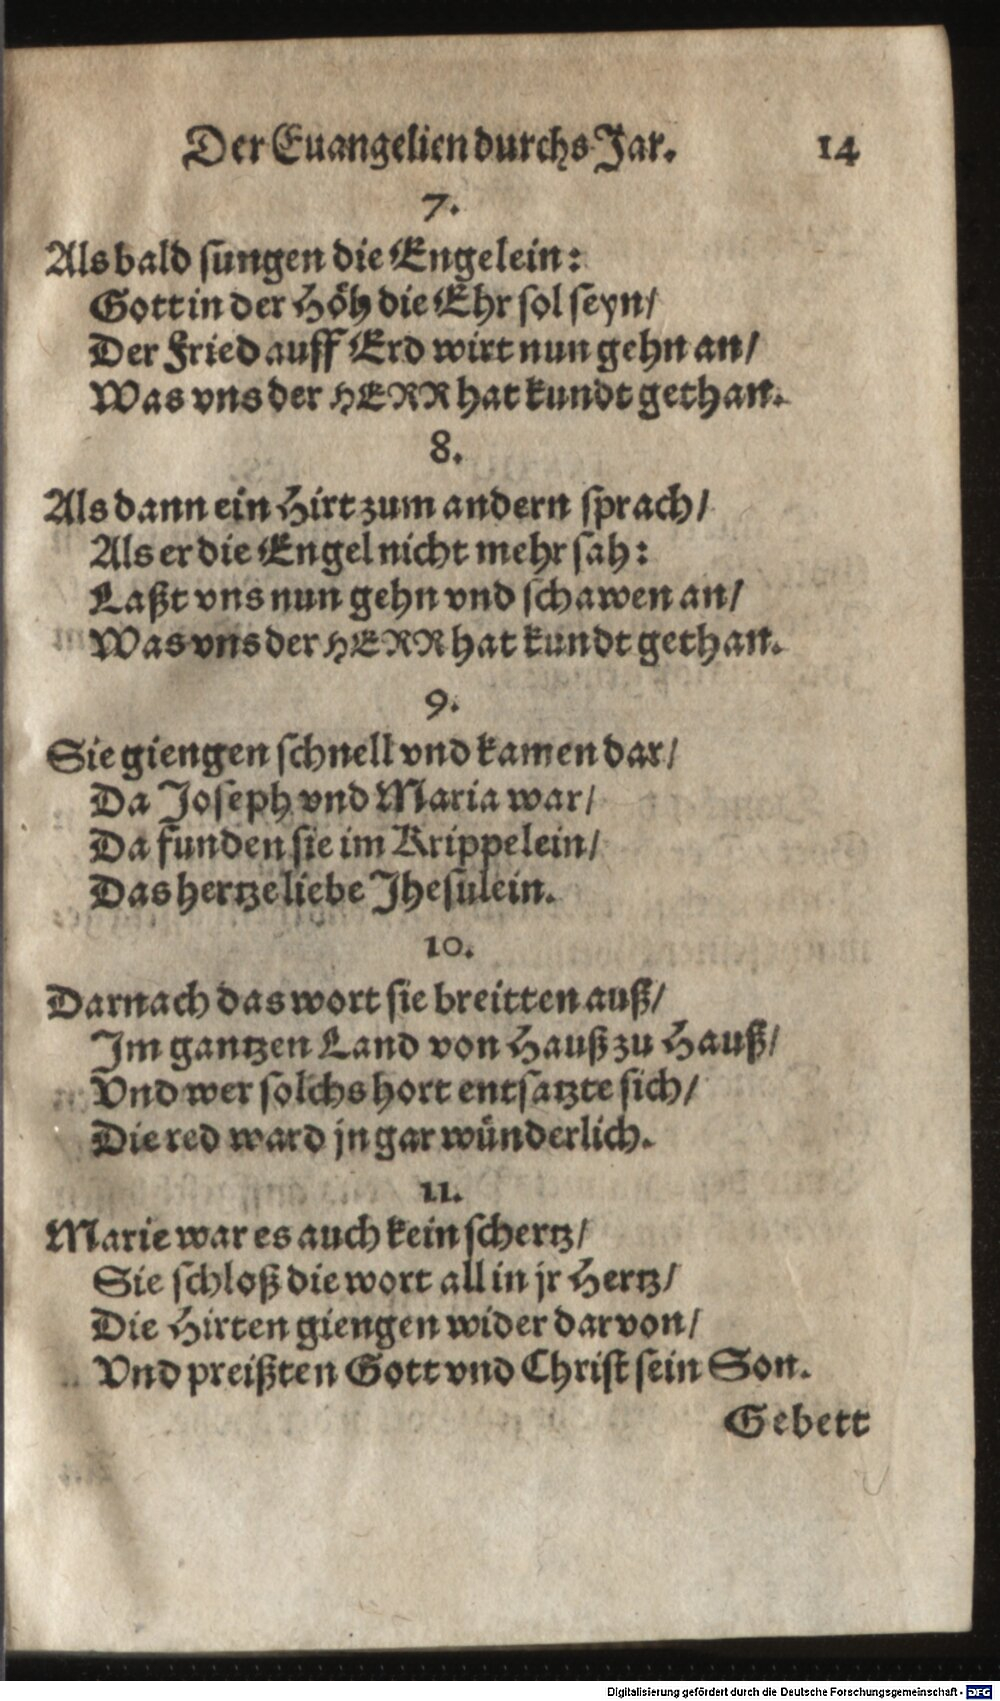 Der Euangelien durchs Jar. 14
7.
Als bald sungen die Engelein:
Gott in der Höh die Ehr sol seyn/
Der Fried auff Erd wirt nun gehn an/
Was vns der HERR hat kundt gethan.
8.
Als dann ein Hirt zum andern sprach/
Als er die Engel nicht mehr sah:
Laßt vns nun gehn vnd schawen an/
Was vns der HERR hat kundt gethan.
9.
Sie giengen schnell vnd kamen dar/
Da Joseph vnd Maria war/
Da funden sie im Krippelein/
Das hertzeliebe Jhesulein.
10.
Darnach das wort sie breitten auß/
Im gantzen Land von Hauß zu Hauß/
Vnd wer solchs hort entsatzte sich/
Die red ward jn gar wünderlich.
11.
Marie war es auch kein schertz/
Sie schloß die wort all in jr Hertz/
Die Hirten giengen wider darvon/
Vnd preißten Gott vnd Christ sein Son.
Gebett
Digitalisierung gefördert durch die Deutsche Forschungsgemeinschaft - DFG